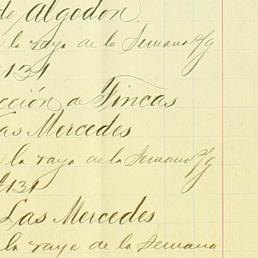 de Algodon.
la raya de la Semana
131
cción de Fincas
Las Mercedes
la raya de la Semana
#131
Las Mercedes
la raya de la Semana